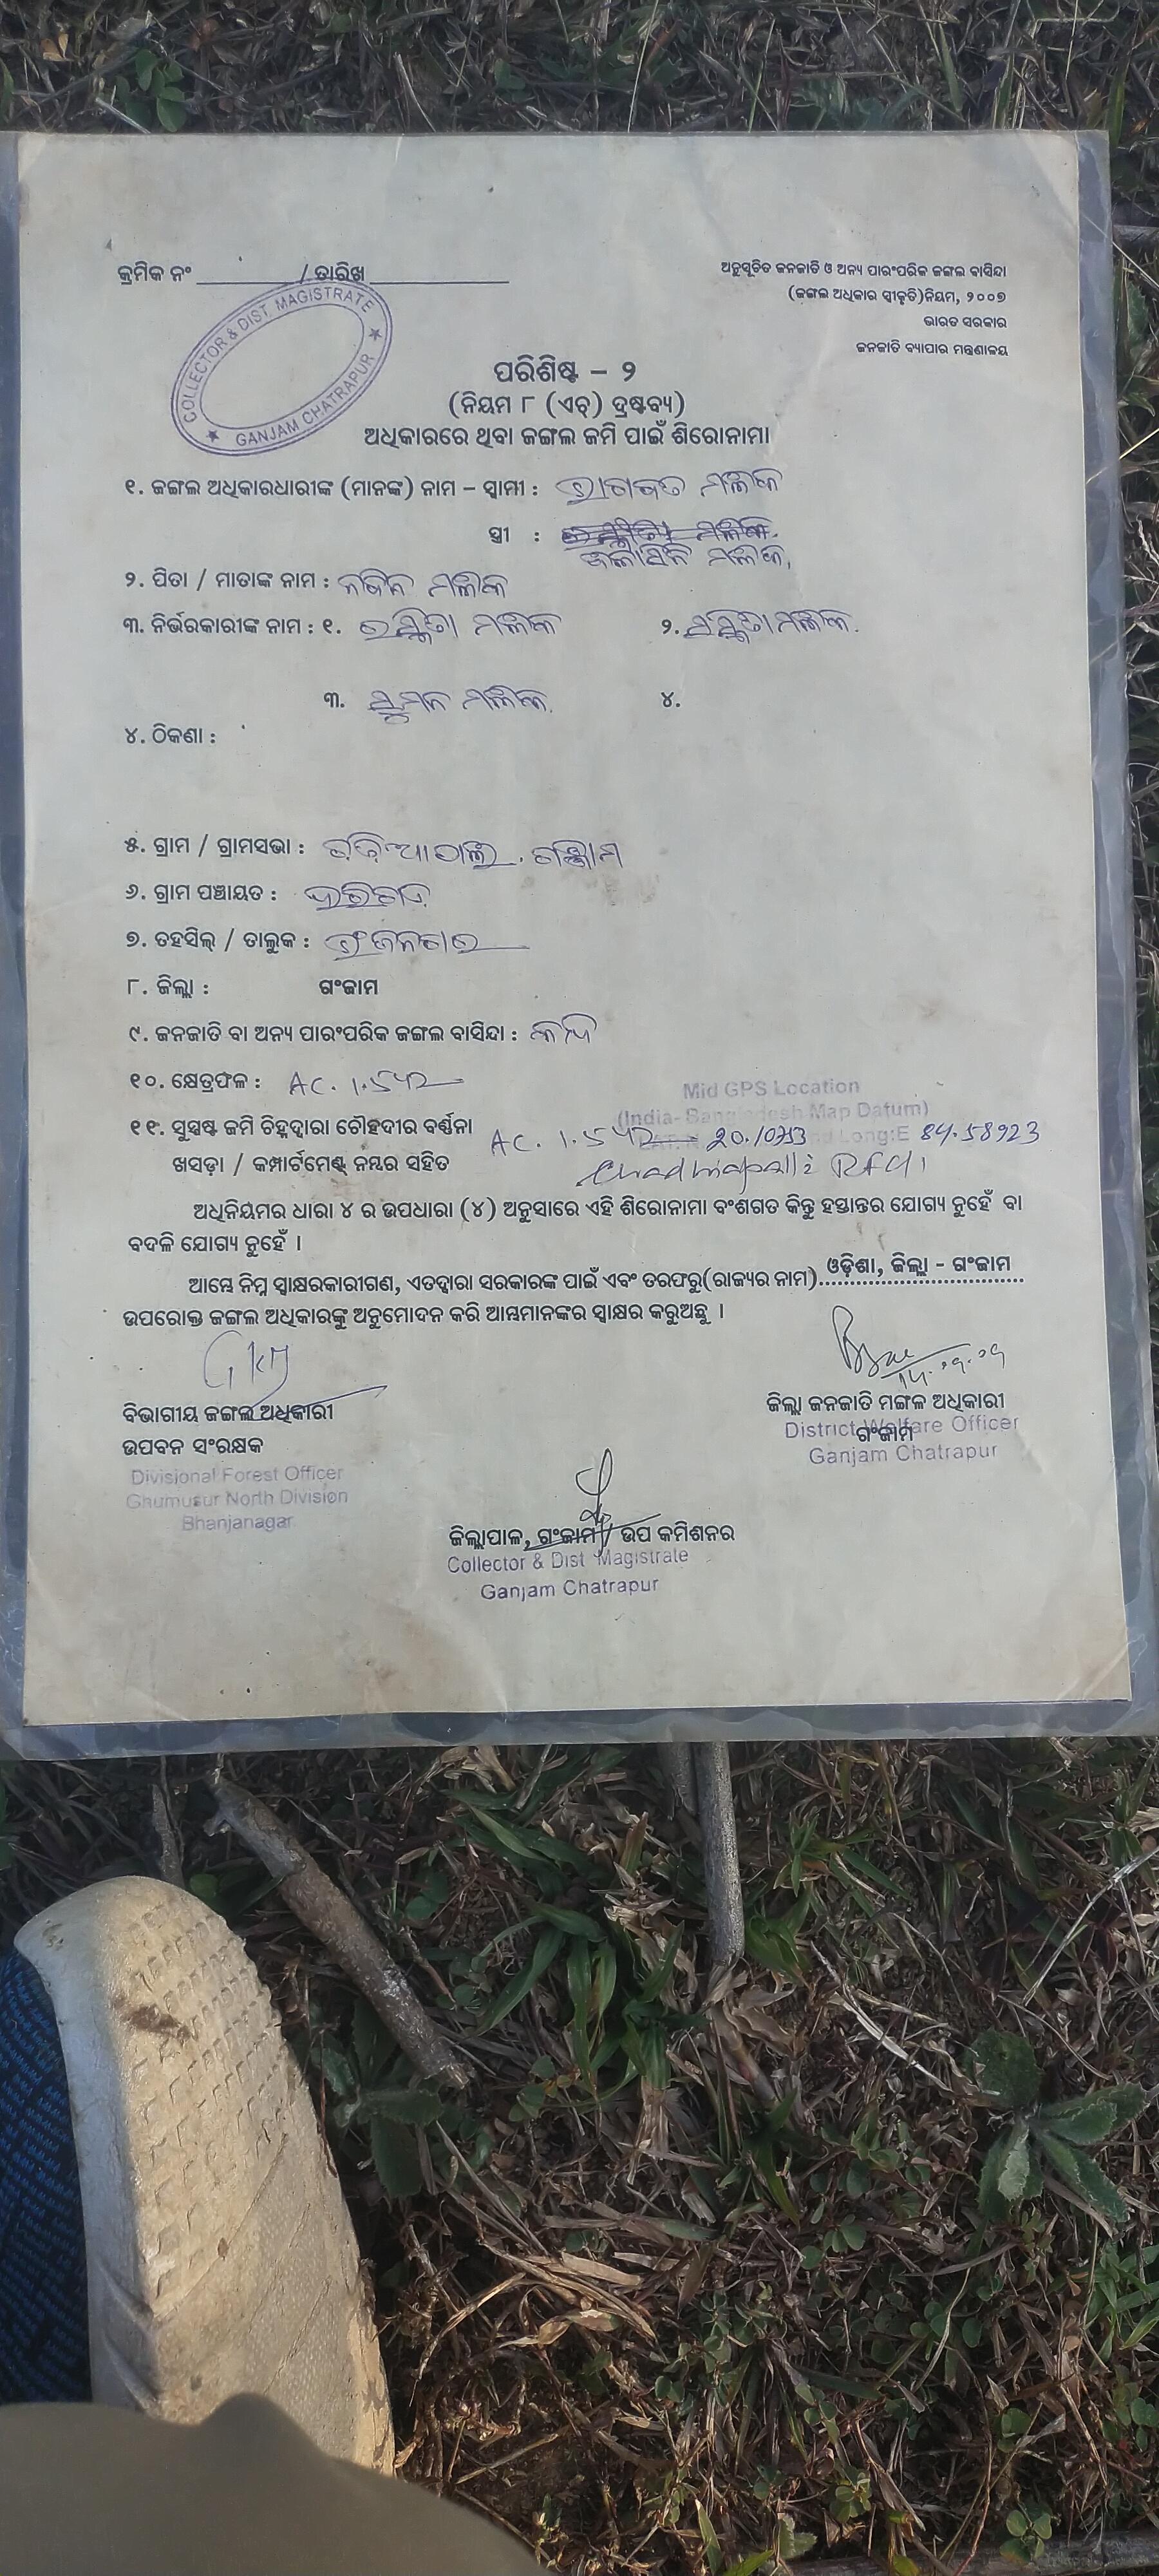 କ୍ରମିକ ନଂ ____________/ ତାରିଖ ______________
ଅନୁସୂଚିତ ଜନଜାତି ଓ ଅନ୍ୟ ପାରଂପରିକ ଜଙ୍ଗଲ ବାସିନ୍ଦା
(ଜଙ୍ଗଲ ଅଧିକାର ସ୍ୱୀକୃତି)ନିୟମ, ୨୦୦୭
ଭାରତ ସରକାର
ଜନଜାତି ବ୍ୟାପାର ମନ୍ତ୍ରଣାଳୟ
COLLECTOR & DIST. MAGISTRATE
GANJAM CHATRAPUR
ପରିଶିଷ୍ଟ – ୨
(ନିୟମ ୮ (ଏଚ୍) ଦ୍ରଷ୍ଟବ୍ୟ)
ଅଧିକାରରେ ଥିବା ଜଙ୍ଗଲ ଜମି ପାଇଁ ଶିରୋନାମା
୧. ଜଙ୍ଗଲ ଅଧିକାରଧାରୀଙ୍କ (ମାନଙ୍କ) ନାମ – ସ୍ୱାମୀ : ଭାଗବତ ମଲ୍ଲିକ
ସ୍ତ୍ରୀ :
ମଲ୍ଲିକ
୨. ପିତା / ମାତାଙ୍କ ନାମ : ନବିନ ମଲ୍ଲିକ
୩. ନିର୍ଭରକାରୀଙ୍କ ନାମ : ୧. ମଲ୍ଲିକ ୨. ମଲ୍ଲିକ
୩. ସୁମନ ମଲ୍ଲିକ ୪.
୪. ଠିକଣା :
୫. ଗ୍ରାମ / ଗ୍ରାମସଭା :
୬. ଗ୍ରାମ ପଞ୍ଚାୟତ :
୭. ତହସିଲ୍ / ତାଲୁକ : ଭଂଜନଗର
୮. ଜିଲ୍ଲା : ଗଂଜାମ
୯. ଜନଜାତି ବା ଅନ୍ୟ ପାରଂପରିକ ଜଙ୍ଗଲ ବାସିନ୍ଦା : କନ୍ଧ
୧୦. କ୍ଷେତ୍ରଫଳ : AC. 1.542
Mid GPS Location
(India- Bangladesh Map Datum)
୧୧. ସୁସ୍ପଷ୍ଟ ଜମି ଚିହ୍ନଦ୍ୱାରା ଚୌହଦୀର ବର୍ଣ୍ଣନା AC. 1.542 20.10753 Long:E 84.58923
ଖସଡ଼ା / କମ୍ପାର୍ଟମେଣ୍ଟ୍ ନମ୍ବର ସହିତ
ଅଧିନିୟମର ଧାରା ୪ ର ଉପଧାରା (୪) ଅନୁସାରେ ଏହି ଶିରୋନାମା ବଂଶଗତ କିନ୍ତୁ ହସ୍ତାନ୍ତର ଯୋଗ୍ୟ ନୁହେଁ ବା
ବଦଳି ଯୋଗ୍ୟ ନୁହେଁ ।
ଆମ୍ଭେ ନିମ୍ନ ସ୍ୱାକ୍ଷରକାରୀଗଣ, ଏତଦ୍ଵାରା ସରକାରଙ୍କ ପାଇଁ ଏବଂ ତରଫରୁ(ରାଜ୍ୟର ନାମ) ଓଡ଼ିଶା, ଜିଲ୍ଲା - ଗଂଜାମ
ଉପରୋକ୍ତ ଜଙ୍ଗଲ ଅଧିକାରଙ୍କୁ ଅନୁମୋଦନ କରି ଆମ୍ଭମାନଙ୍କର ସ୍ୱାକ୍ଷର କରୁଅଛୁ ।
ବିଭାଗୀୟ ଜଙ୍ଗଲ ଅଧିକାରୀ
ଉପବନ ସଂରକ୍ଷକ
Divisional Forest Officer
Ghumusur North Division
Bhanjanagar
ଜିଲ୍ଲା ଜନଜାତି ମଙ୍ଗଳ ଅଧିକାରୀ
ଗଂଜାମ
District Welfare Officer
Ganjam Chatrapur
ଜିଲ୍ଲାପାଳ, ଗଂଜାମ / ଉପ କମିଶନର
Collector & Dist Magistrate
Ganjam Chatrapur